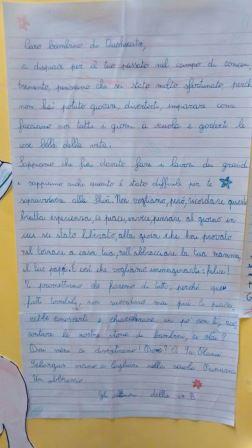 Caro bambino di Buchenwald,
ci dispiace per il tuo passato nel campo di concen
tramento, pensiamo che sei stato molto sfortunato perché
non hai potuto giocare, divertirti, imparare come
facciamo noi tutti i giorni a scuola e goderti le
cose belle della vita.
Sappiamo che hai dovuto fare i lavori da grandi
e sappiamo anche quanto è stato difficile per te
sopravvivere alla Shoà. Non vogliamo, però, ricordare questa
brutta esperienza, ci piace invece pensare al giorno in
cui sei stato liberato, alla gioia che hai provato
nel tornare a casa tua, nell'abbracciare la tua mamma,
il tuo papà: è così che vogliamo immaginarti: felice!
Ti promettiamo che faremo di tutto, perché questi
fatti terribili, non succedano mai più. Ci piace
rebbe conoscerti e chiacchierare un po' con te, rac
contare le nostre storie di bambini, ci stai?
Dove
nella scuola Primaria
Un abbraccio
Gli alunni della